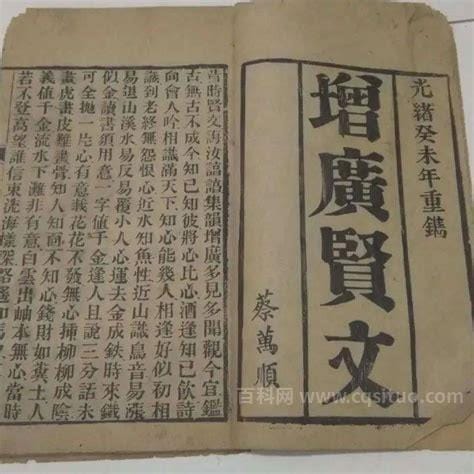 光緒癸未年重鐫
增廣賢文
蔡萬順
昔時賢文誨汝諄諄集韻增廣多見多聞觀今宜鑑
古無古不成今知己知彼將心比心酒逢知己飲詩
向會人吟相識滿天下知心能幾人相逢好似初相
識到老終無怨恨心近水知魚性近山識鳥音易漲
易退山溪水易反易覆小人心運去金成鉄時來鐵
似金讀書須用意一字值千金逢人且說三分話未
可全拋一片心有意栽花花不發無心插柳柳成陰
畫虎畫皮難畫骨知人知面不知心錢財如糞土人
義值千金流水下灘非有意白雲出岫本無心當時
若不登高望誰信東流海樣深路遙知馬
百科网 www.cqsituo.com